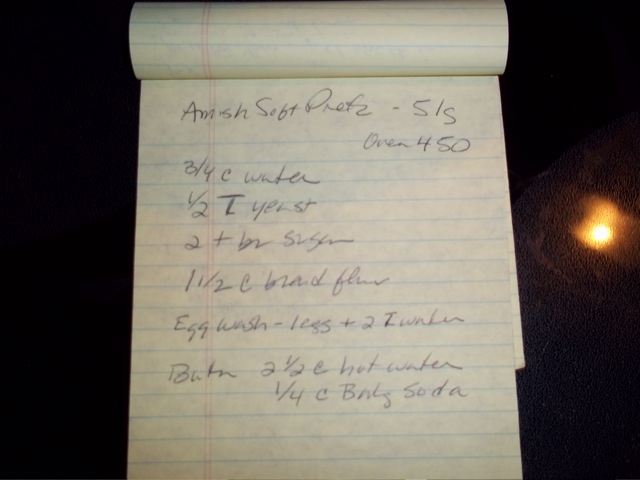 Amish Soft Pretz - 5/5
Oven 450
3/4 c water
1/2 T yeast
2 t br sugar
1 1/2 c bread flour
Egg wash - 1 egg + 2 T water
2 1/2 c hot water
1/4 c Bakg Soda